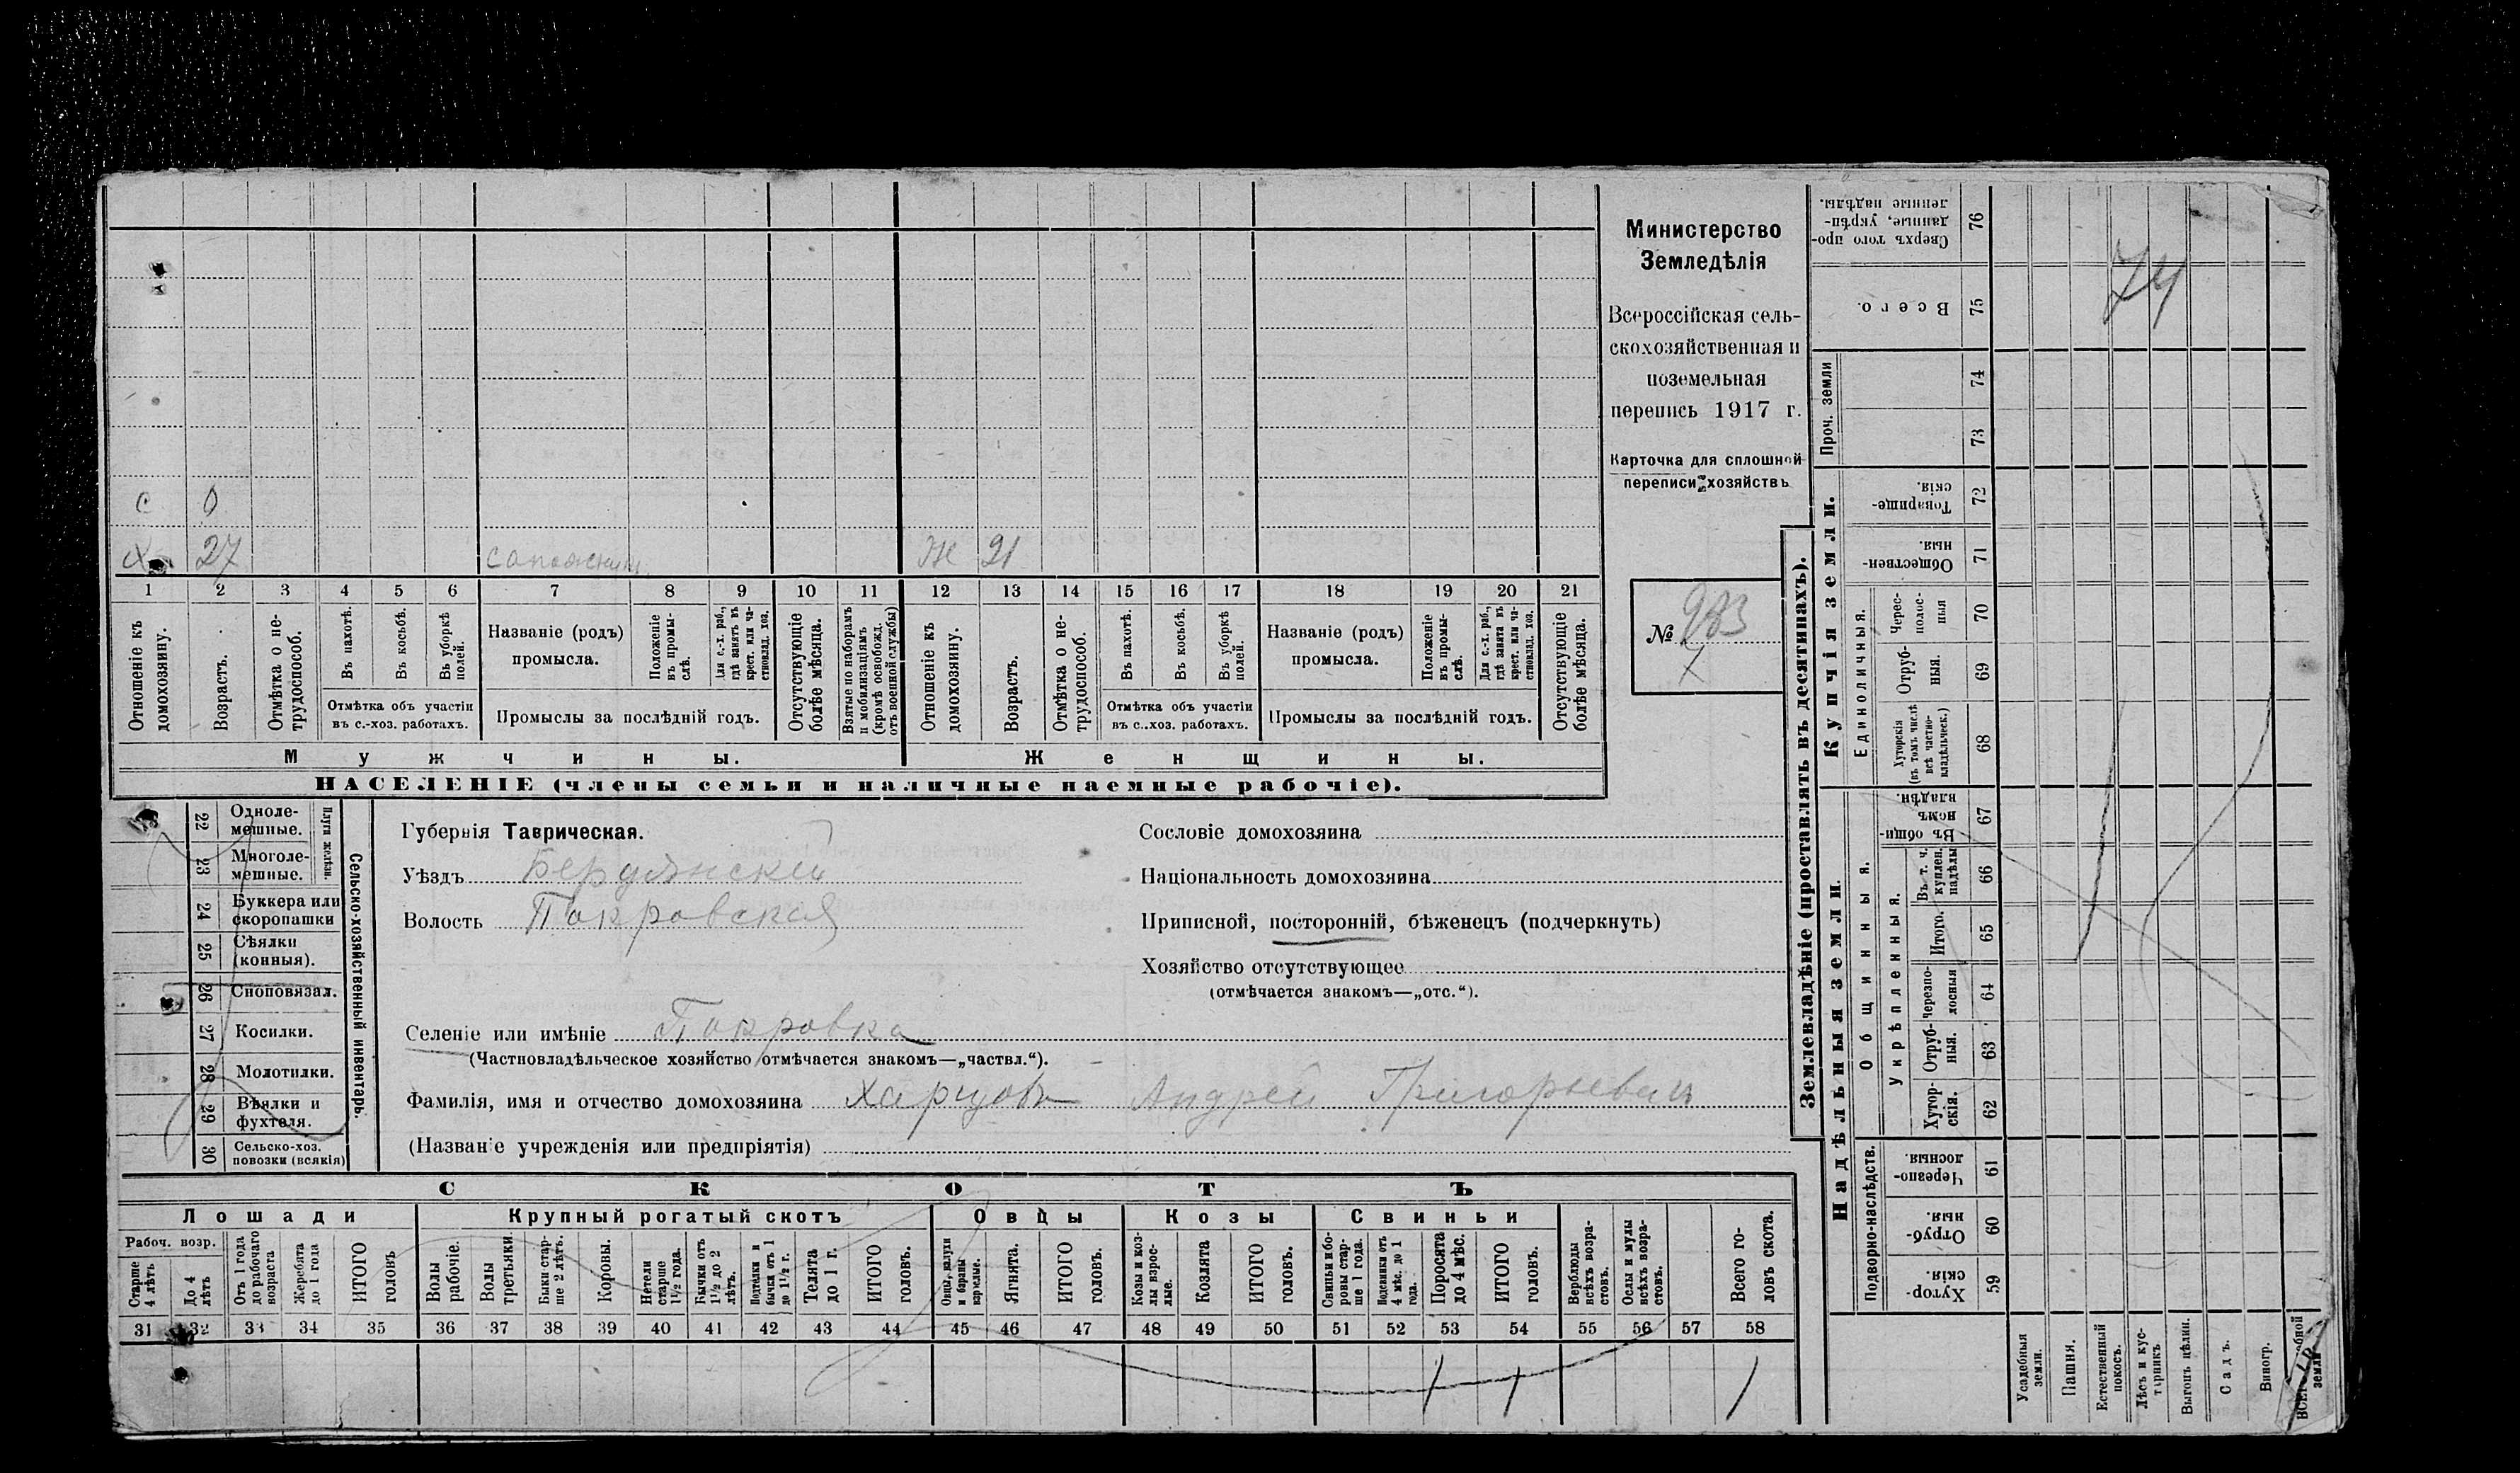 Министерство
Земледѣлія
Всероссійская сель-
скохозяйственная и
поземельная
перепись 1917 г.
Карточка для сплошной
переписи хозяйствъ
№ 983
X
с 0
Х 27 сапожник Ж 21
1 2 3 4 5 6 7 8 9 10 11 12 13 14 15 16 17 18 19 20 21
Отношеніе къ домохозяину.
Возрастъ.
Отмѣтка о не-трудоспособ.
Въ пахотѣ.
Въ косьбѣ.
Въ уборкѣ полей.
Отмѣтка объ участіи
въ с.-хоз. работахъ.
Названіе (родъ)
промысла.
Положеніе въ промы-слѣ.
Для с.-х. раб., гдѣ занятъ въ крест. или ча-стновлад. хоз.
Промыслы за послѣдній годъ.
Отсутствующіе болѣе мѣсяца.
Взятые по наборамъ и мобилизаціямъ (кромѣ освобожд. отъ военной службы)
Отношеніе къ домохозяину.
Возрастъ.
Отмѣтка о не-трудоспособ.
Въ пахотѣ.
Въ косьбѣ.
Въ уборкѣ полей.
Отмѣтка объ участіи
въ с.-хоз. работахъ.
Названіе (родъ)
промысла.
Положеніе въ промы-слѣ.
Для с.-х. раб., гдѣ занята въ крест. или ча-стновлад. хоз.
Промыслы за послѣдній годъ.
Отсутствующіе болѣе мѣсяца.
Мужчины. Женщины.
НАСЕЛЕНІЕ (члены семьи и наличные наемные рабочіе).
22 Одноле-мешные.
23 Многоле-мешные.
Плуги желѣзн.
24 Буккера или скоропашки
25 Сѣялки (конныя).
26 Сноповязал.
27 Косилки.
28 Молотилки.
29 Вѣялки и фухтеля.
30 Сельско-хоз. повозки (всякія)
Сельско-хозяйственный инвентарь.
Губернія Таврическая.
Уѣздъ Бердянскій
Волость Покровская
Сословіе домохозяина
Національность домохозяина
Приписной, посторонній, бѣженецъ (подчеркнуть)
Хозяйство отсутствующее
(отмѣчается знакомъ—„отс.“).
Селеніе или имѣніе Покровка
(Частновладѣльческое хозяйство отмѣчается знакомъ—„частвл.“).
Фамилія, имя и отчество домохозяина Харцовъ Андрей Григорьевич
(Названіе учрежденія или предпріятія)
СКОТЪ
Лошади Крупный рогатый скотъ Овцы Козы Свиньи
Рабоч. возр.
Старше 4 лѣтъ
До 4 лѣтъ
Отъ 1 года до рабочаго возраста
Жеребята до 1 года
ИТОГО головъ
Волы рабочіе.
Волы третьяки.
Быки стар-ше 2 лѣтъ.
Коровы.
Нетели старше 1½ года.
Бычки отъ 1½ до 2 лѣтъ.
Подтелки и бычки отъ 1 до 1½ г.
Телята до 1 г.
ИТОГО головъ.
Овцы, валухи и бараны взрослые.
Ягнята.
ИТОГО головъ.
Козы и коз-лы взрос-лые.
Козлята
ИТОГО головъ.
Свиньи и бо-ровы стар-ше 1 года.
Подсвинки отъ 4 мѣс. до 1 года.
Поросята до 4 мѣс.
ИТОГО головъ.
Верблюды всѣхъ возра-стовъ.
Ослы и мулы всѣхъ возра-стовъ.
Всего го-ловъ скота.
31 32 33 34 35 36 37 38 39 40 41 42 43 44 45 46 47 48 49 50 51 52 53 54 55 56 57 58
1 1 1
Землевладѣніе (проставлять въ десятинахъ).
Купчія земли.
Надѣльныя земли.
Проч. земли
Единоличныя.
Общинныя.
Укрѣпленныя.
Подворно-наслѣдств.
Сверхъ того про-данные, укрѣп-ленные надѣлы. 76
Всего. 75
74
73
Товарище-скія. 72
Обществен-ныя. 71
Черес-полос-ныя 70
Отруб-ныя. 69
Хуторскія (въ томъ числѣ всѣ частно-владѣльческ.) 68
Въ общи-номъ владѣн. 67
Въ т. ч. куплен. надѣлы 66
Итого. 65
черезпо-лосныя 64
Отруб-ныя. 63
Хутор-скія. 62
Черезпо-лосныя. 61
Отруб-ныя. 60
Хутор-скія. 59
Усадебныя земли.
Пашня.
Естественный покосъ.
Лѣсъ и кус-тарникъ
Выгонъ цѣлин.
Садъ.
Виногр.
74